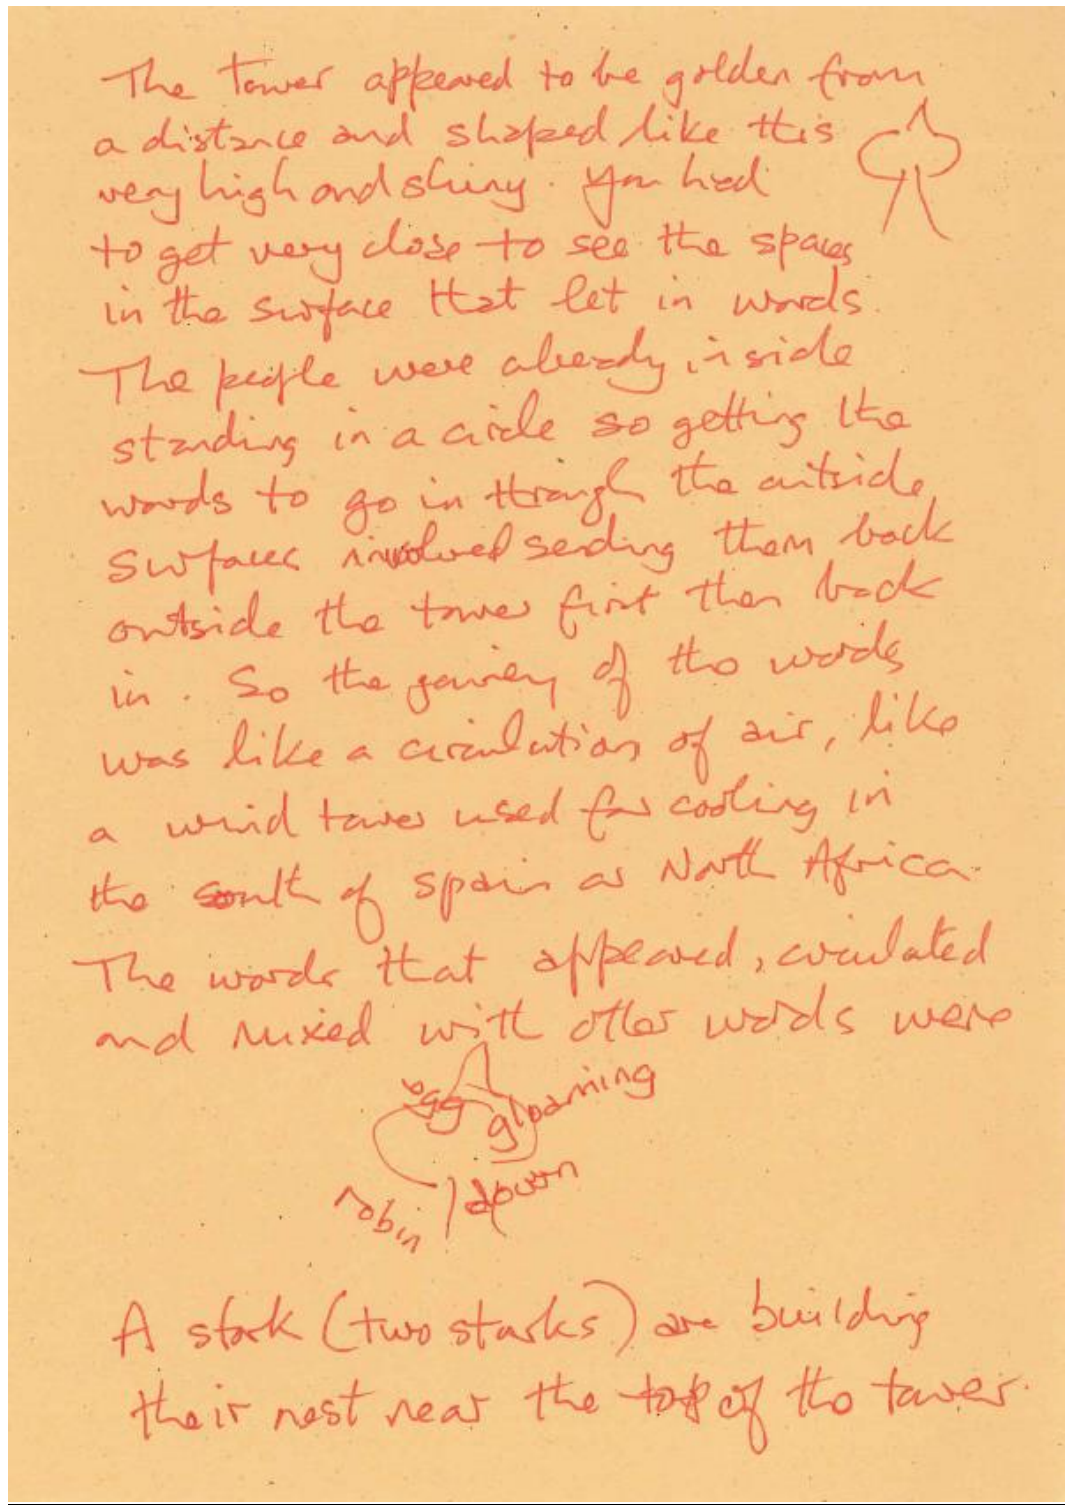 The tower appeared to be golden from
a distance and shaped like this
very high and shiny. You had
to get very close to see the spaces
in the surface that let in words.
The people were already inside
standing in a circle so getting the
words to go in through the outside
surfaces involved sending them back
outside the tower first then back
in. So the journey of the words
was like a circulation of air, like
a wind tower used for cooling in
the south of Spain or North Africa.
The words that appeared, circulated
and mixed with other words were
egg gloaming
robin / down
A stork (two storks) are building
their nest near the top of the tower.